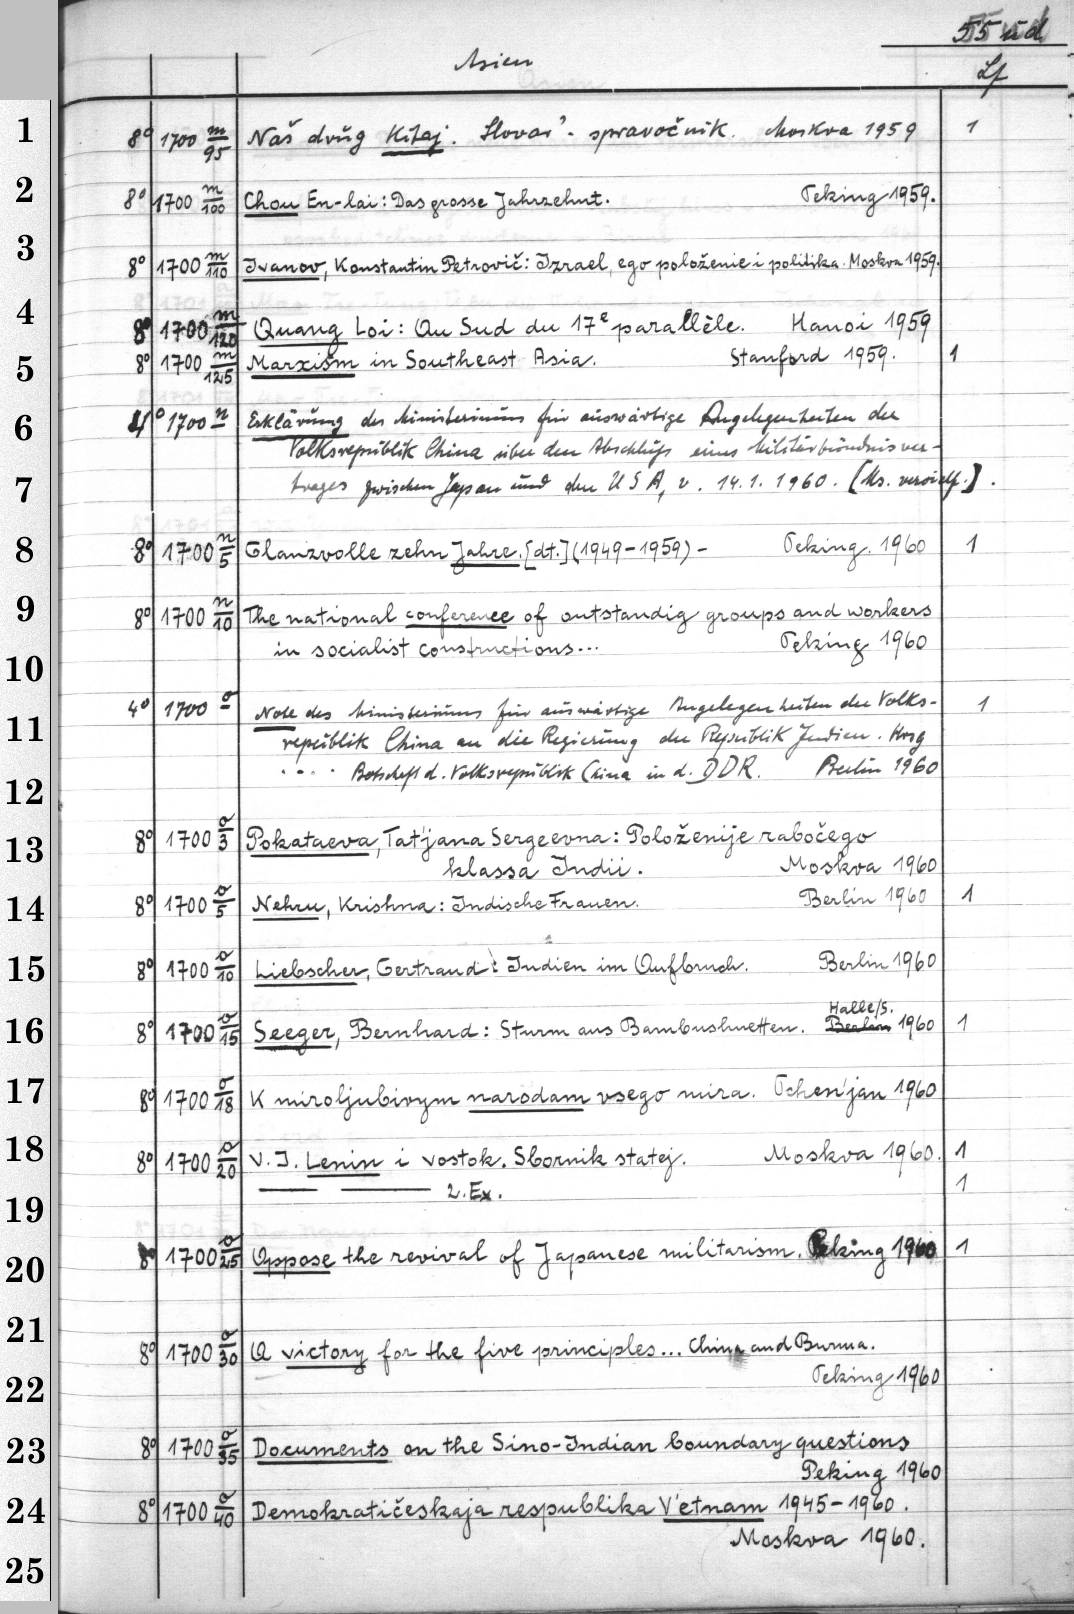 55 u d
Asien
Lf
1 8° 1700 m/95 Naš drug Kitaj. Slovar'- spravočnik. Moskva 1959 1
2 8° 1700 m/100 Chou En-lai: Das grosse Jahrzehnt. Peking 1959.
3 8° 1700 m/110 Ivanov, Konstantin Petrovič: Izrael, ego položenie i politika. Moskva 1959.
4 8° 1700 m/120 Quang Loi: Au Sud du 17e parallèle. Hanoi 1959
5 8° 1700 m/125 Marxism in Southeast Asia. Stanford 1959. 1
6 4° 1700 n Erklärung des Ministeriums für auswärtige Angelegenheiten der
Volksrepublik China über den Abschluß eines Militärbündnisver-
7 trages zwischen Japan und den USA, v. 14.1.1960. [Ms. vervielf.].
8 8° 1700 n/5 Glanzvolle zehn Jahre. [dt.] (1949-1959) - Peking. 1960 1
9 8° 1700 n/10 The national conference of outstandig groups and workers
in socialist constructions... Peking 1960
10
11 4° 1700 o Note des Ministeriums für auswärtige Angelegenheiten der Volks- 1
republik China an die Regierung der Republik Indien. Hrsg
.... Botschaft d. Volksrepublik China in d. DDR. Berlin 1960
12
13 8° 1700 o/3 Pokataeva, Tat'jana Sergeevna: Položenije rabočego
klassa Indii. Moskva 1960
14 8° 1700 o/5 Nehru, Krishna: Indische Frauen. Berlin 1960 1
15 8° 1700 o/10 Liebscher, Gertraud: Indien im Aufbruch. Berlin 1960
Halle/S.
16 8° 1700 o/15 Seeger, Bernhard: Sturm aus Bambushuetten. Berlin 1960 1
17 8° 1700 o/18 K miroljubivym narodam vsego mira. Pchen'jan 1960
18 8° 1700 o/20 V. I. Lenin i vostok. Sbornik statej. Moskva 1960. 1
— — 2. Ex. 1
19
20 8° 1700 o/25 Oppose the revival of Japanese militarism. Peking 1960 1
21 8° 1700 o/30 A victory for the five principles... China and Burma.
22 Peking 1960
23 8° 1700 o/35 Documents on the Sino-Indian boundary questions
Peking 1960
24 8° 1700 o/40 Demokratičeskaja respublika V'etnam 1945-1960.
Moskva 1960.
25